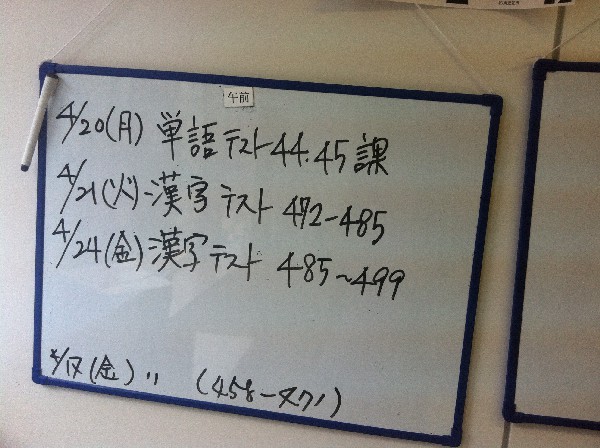 午前
4/20(月) 単語テスト44.45課
4/21(火)-漢字テスト 472-485
4/24(金)漢字テスト 485~499
4/17(金)〃 (458-471)